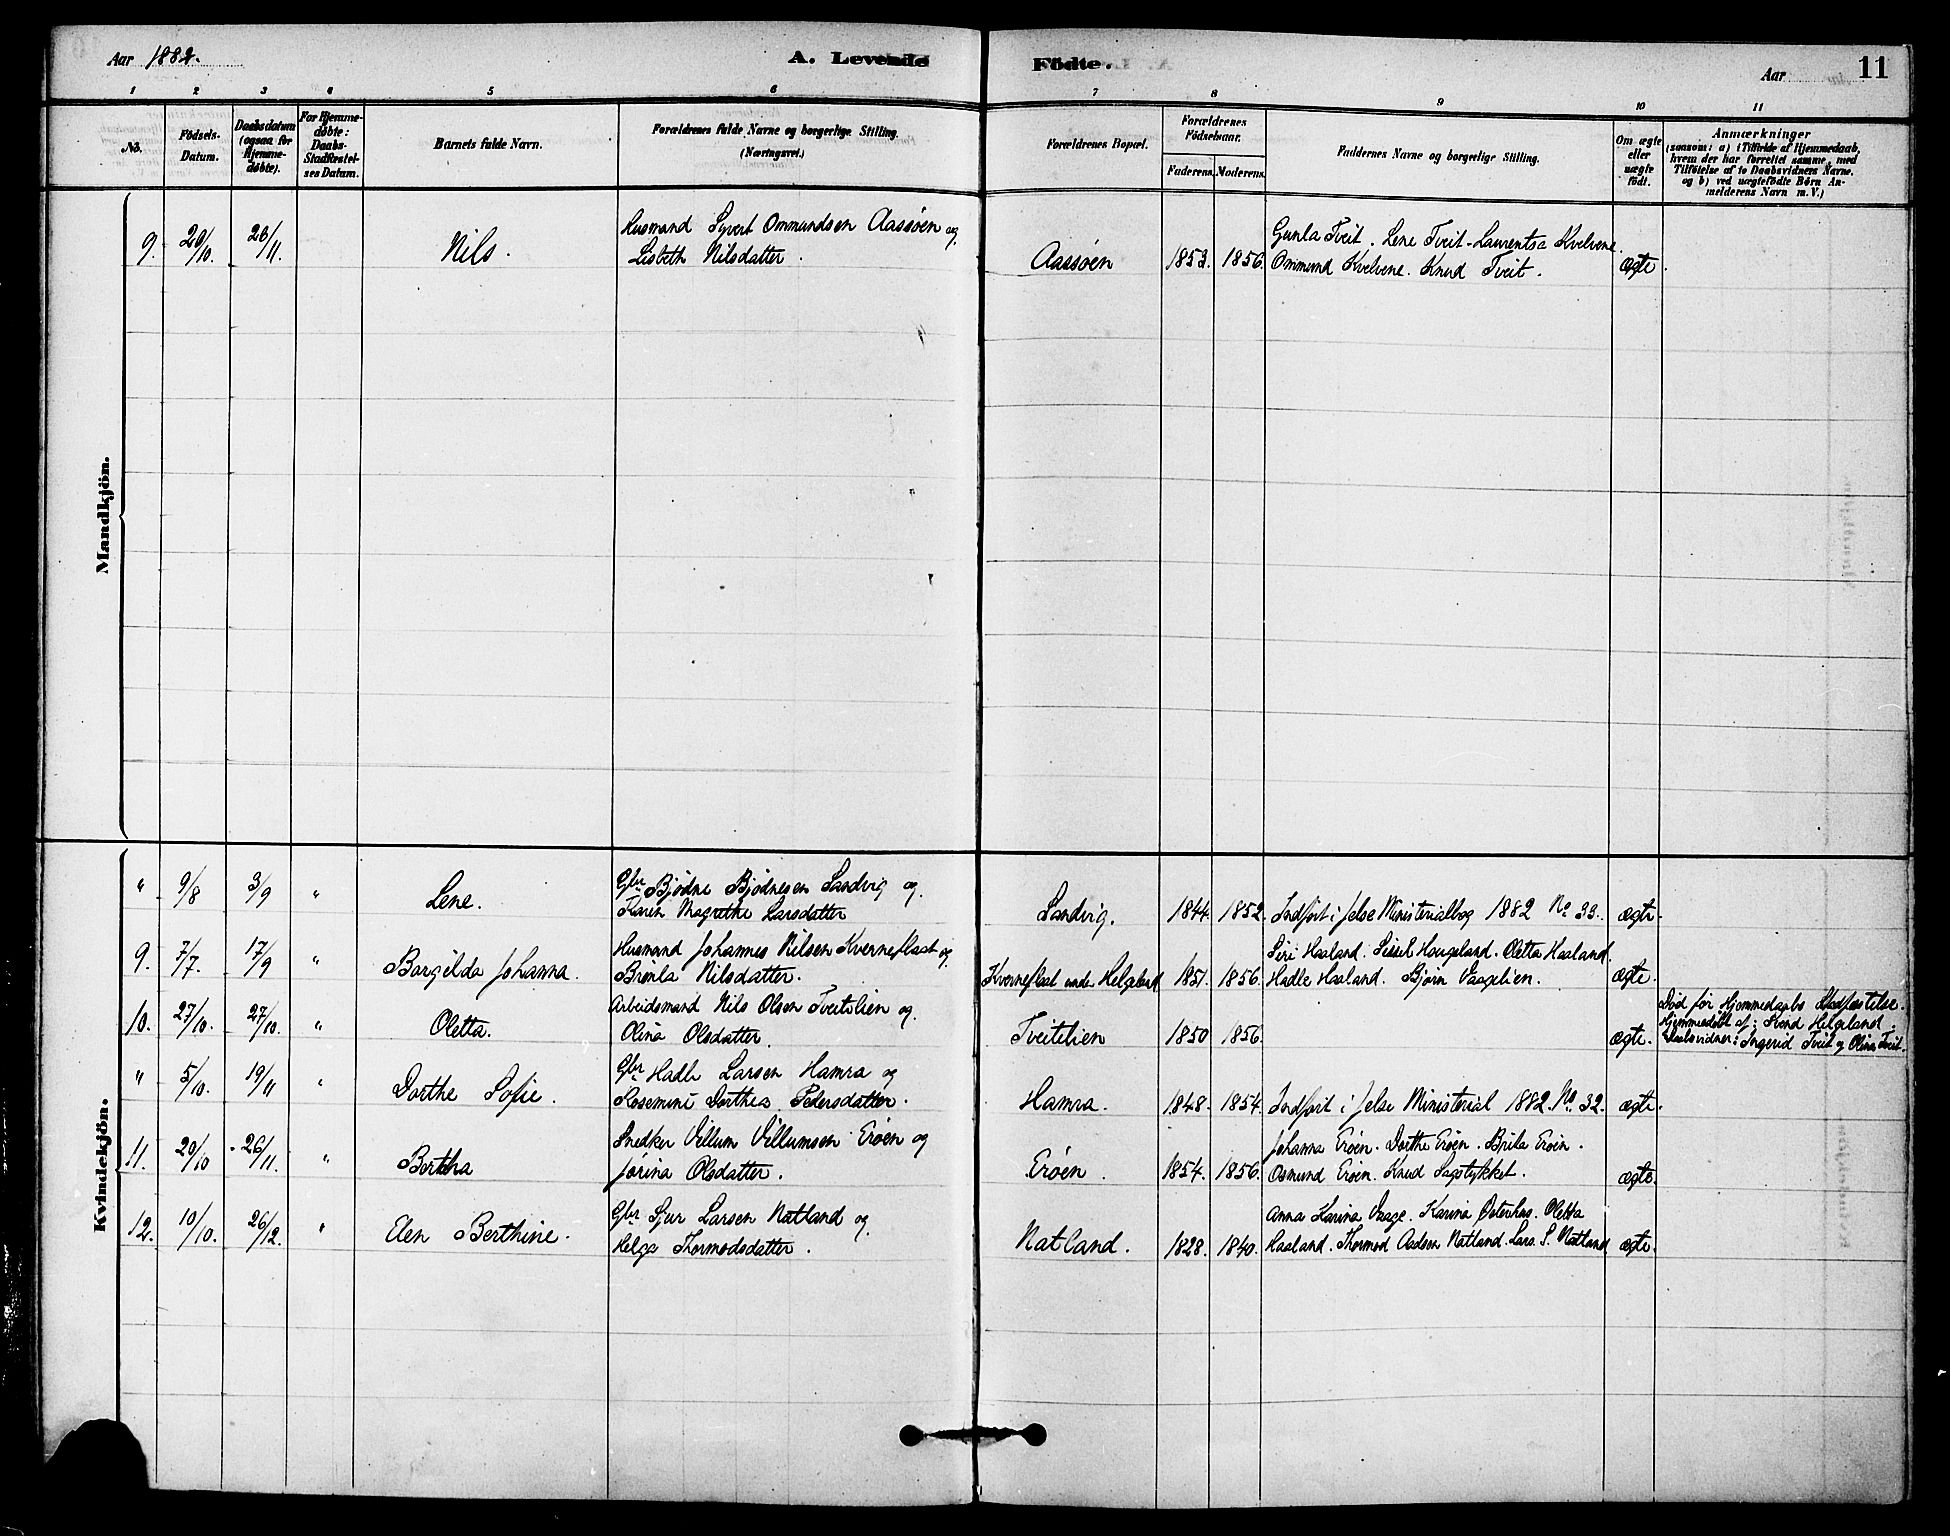 Aar 1882.
A. Levende Födte.
Aar
11
1 2 3 4 5 6 7 8 9 10 11
No.
Födsels-Datum.
Daabsdatum (ogsaa for Hjemme-døbte).
For Hjemme-døbte: Daabs-Stadfæstel-ses Datum.
Barnets fulde Navn.
Forældrenes fulde Navne og borgerlige Stilling.
(Næringsvei.)
Forældrenes Bopæl.
Forældrenes Födselsaar.
Faderens. Moderens.
Faddernes Navne og borgerlige Stilling.
Om ægte eller uægte født.
Anmærkninger
(saasom: a) i Tilfælde af Hjemmedaab,
hvem der har forrettet samme, med
Tilføielse af to Daabsvidners Navne,
og b) ved uægtefødte Börn An-
melderens Navn m. V.)
Mandkjön.
9. 20/10. 26/11. Nils. Husmand Syvert Ommundsen Aassøen og
Lisbeth Nilsdatter. Aassøen 1853. 1856. Gunla Tveit. Lene Tveit. Laurentsa Kvelvene.
Ommund Kvelvene. Knud Tveit. ægte.
Kvindekjön.
" 9/8 3/9 " Lene. Gbr Bjødne Bjødnesen Sandvig og
Karen Magrethe Larsdatter Sandvig. 1844. 1852. Indført i Jelse Ministerialbog 1882 No 33. ægte.
9. 7/7. 17/9 " Borgilda Johanna. Husmand Johannes Nilsen Kverneflaat og
Brønla Nilsdatter. Kverneflaat under Helgeland 1851. 1856. Siri Haaland. Sissel Haugeland. Oletta Haaland.
Hadle Haaland. Bjørn Vaagelien. ægte.
10. 27/10. 27/10. " Oletta. Arbeidsmand Nils Olsen Tveitelien og
Olina Olsdatter. Tveitelien 1850 1856. ægte. Død før Hjemmedaabs Stadfæstelse.
Hjemmedøbt af: Svend Helgeland.
Daabsvidner: Ingerid Tveit og Olina Tveit.
" 5/10. 19/11 " Dorthe Sofie. Gbr Hadle Larsen Hamra og
Rosemine Dorthea Pedersdatter. Hamra. 1848. 1854. Indført i Jelse Ministerial 1882. No. 32. ægte.
11. 20/10 26/11. " Bertha Snedker Villum Villumsen Erøen og
Jorina Olsdatter. Erøen. 1854. 1856. Johanna Erøen. Dorthe Erøen. Brita Erøen.
Osmund Erøen. Knud Sagstykket. ægte.
12. 10/10. 26/12. " Elen Berthine. Gbr Sjur Larsen Natland og
Helga Thormodsdatter. Natland. 1828. 1840. Anna Karina Vaage. Karina Østerhus. Oletta
Haaland. Thormod Aadsen Natland. Lars S. Natland ægte.